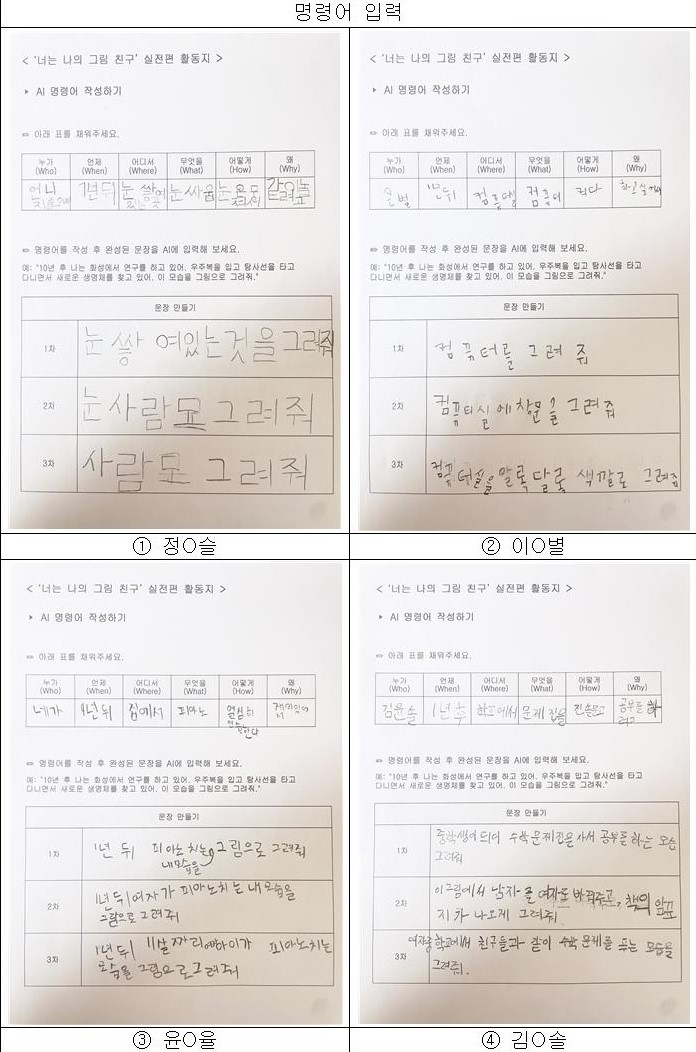 명령어 입력
< '너는 나의 그림 친구' 실전편 활동지 >
▸ AI 명령어 작성하기
✏ 아래 표를 채워주세요.
누가 언제 어디서 무엇을 어떻게 왜
(Who) (When) (Where) (What) (How) (Why)
언니 1년뒤 눈 쌓 눈싸움
✏ 명령어를 작성 후 완성된 문장을 AI에 입력해 보세요.
예: "10년 후 나는 화성에서 연구를 하고 있어. 우주복을 입고 탐사선을 타고
다니면서 새로운 생명체를 찾고 있어. 이 모습을 그림으로 그려줘."
문장 만들기
1차 눈 쌓 여있는것을 그려줘
2차 눈사람도 그려줘
3차 사람도 그려줘
① 정O슬
< '너는 나의 그림 친구' 실전편 활동지 >
▸ AI 명령어 작성하기
✏ 아래 표를 채워주세요.
누가 언제 어디서 무엇을 어떻게 왜
(Who) (When) (Where) (What) (How) (Why)
은별 1년뒤
✏ 명령어를 작성 후 완성된 문장을 AI에 입력해 보세요.
예: "10년 후 나는 화성에서 연구를 하고 있어. 우주복을 입고 탐사선을 타고
다니면서 새로운 생명체를 찾고 있어. 이 모습을 그림으로 그려줘."
문장 만들기
1차 컴퓨터를 그려 줘
2차 컴퓨터실에 창문을 그려줘
3차 컴퓨터실을 알록달록 색깔로 그려줘
② 이O별
< '너는 나의 그림 친구' 실전편 활동지 >
▸ AI 명령어 작성하기
✏ 아래 표를 채워주세요.
누가 언제 어디서 무엇을 어떻게 왜
(Who) (When) (Where) (What) (How) (Why)
내가 1년뒤 집에서 피아노 열심히
✏ 명령어를 작성 후 완성된 문장을 AI에 입력해 보세요.
예: "10년 후 나는 화성에서 연구를 하고 있어. 우주복을 입고 탐사선을 타고
다니면서 새로운 생명체를 찾고 있어. 이 모습을 그림으로 그려줘."
문장 만들기
1차 1년 뒤 피아노 치는 그림으로 그려줘
내모습을
2차 1년뒤 여자가 피아노치는 내모습을
그림으로 그려줘
3차 1년뒤 11살짜리 여자아이가 피아노치는
모습을 그림으로 그려줘
③ 윤O율
< '너는 나의 그림 친구' 실전편 활동지 >
▸ AI 명령어 작성하기
✏ 아래 표를 채워주세요.
누가 언제 어디서 무엇을 어떻게 왜
(Who) (When) (Where) (What) (How) (Why)
김윤솔 1년 후 학교에서 문제집을 공부를
✏ 명령어를 작성 후 완성된 문장을 AI에 입력해 보세요.
예: "10년 후 나는 화성에서 연구를 하고 있어. 우주복을 입고 탐사선을 타고
다니면서 새로운 생명체를 찾고 있어. 이 모습을 그림으로 그려줘."
문장 만들기
1차 중학생이 되어 수학문제집을 사서 공부를 하는 모습
그려줘
2차 이 그림에서 남자를 여자로 바꿔주고, 책의 앞표
지 차 나오게 그려줘.
3차 여자중학교에서 친구들과 같이 수학 문제를 푸는 모습을
그려줘.
④ 김O솔